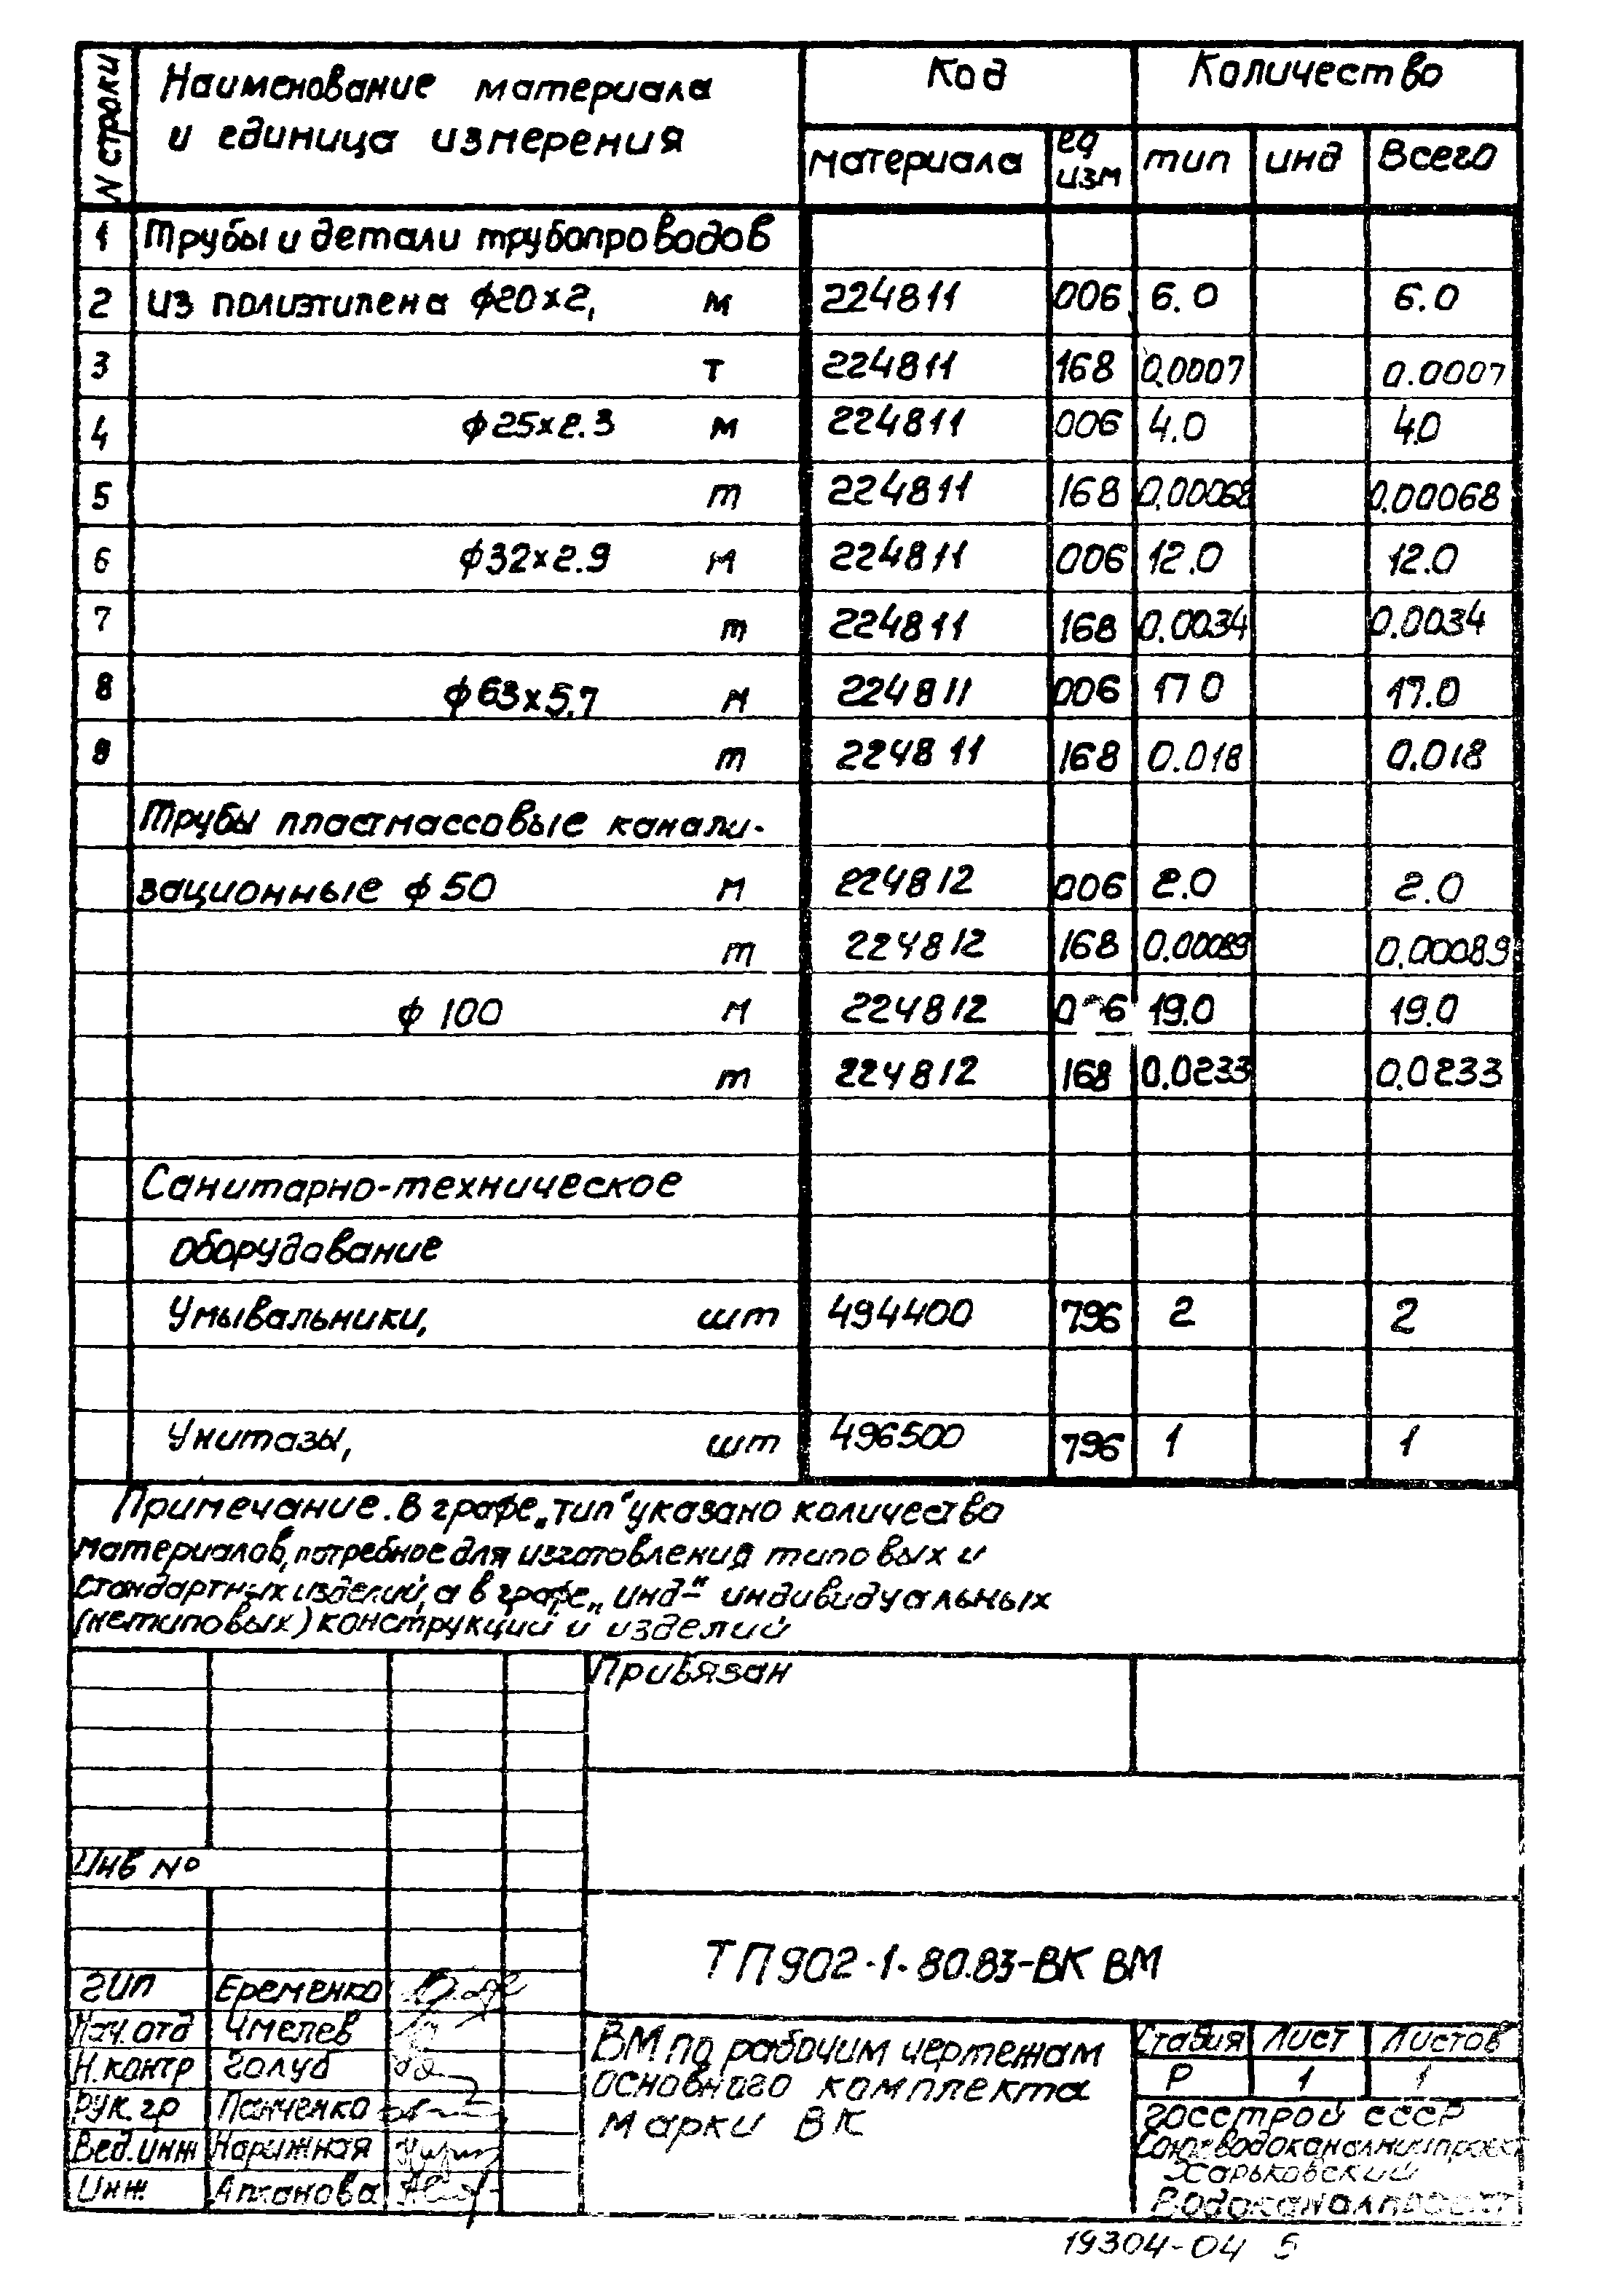 N строки
Наименование материала
и единица измерения
Код
Количество
материала
ед
изм
тип
инд
Всего
1 Трубы и детали трубопроводов
2 из полиэтилена ф20х2, м 224811 006 6.0 6.0
3 т 224811 168 0.0007 0.0007
4 ф25х2.3 м 224811 006 4.0 4.0
5 т 224811 168 0.00068 0.00068
6 ф32х2.9 м 224811 006 12.0 12.0
7 т 224811 168 0.0034 0.0034
8 ф63х5.7 м 224811 006 17 0 17.0
9 т 224811 168 0.018 0.018
Трубы пластмассовые канали-
зационные ф50 м 224812 006 2.0 2.0
т 224812 168 0.00089 0.00089
ф 100 м 224812 006 19.0 19.0
т 224812 168 0.0233 0.0233
Санитарно-техническое
оборудование
Умывальники, шт 494400 796 2 2
Унитазы, шт 496500 796 1 1
Примечание. В графе „тип“ указано количество
материалов, потребное для изготовления типовых и
стандартных изделий, а в графе „инд-“ индивидуальных
(нетиповых) конструкций и изделий
Привязан
Инв №
ТП902-1-80.83-ВК ВМ
ГИП Еременко
Нач.отд Чмелев
Н.контр Голуб
Рук.гр Панченко
Вед.инж Нарижная
Инж.
ВМ по рабочим чертежам
основного комплекта
марки ВК
Стадия Лист Листов
Р 1 1
Госстрой СССР
Союзводоканалниипроект
Харьковский
Водоканалпроект
19304-04 5